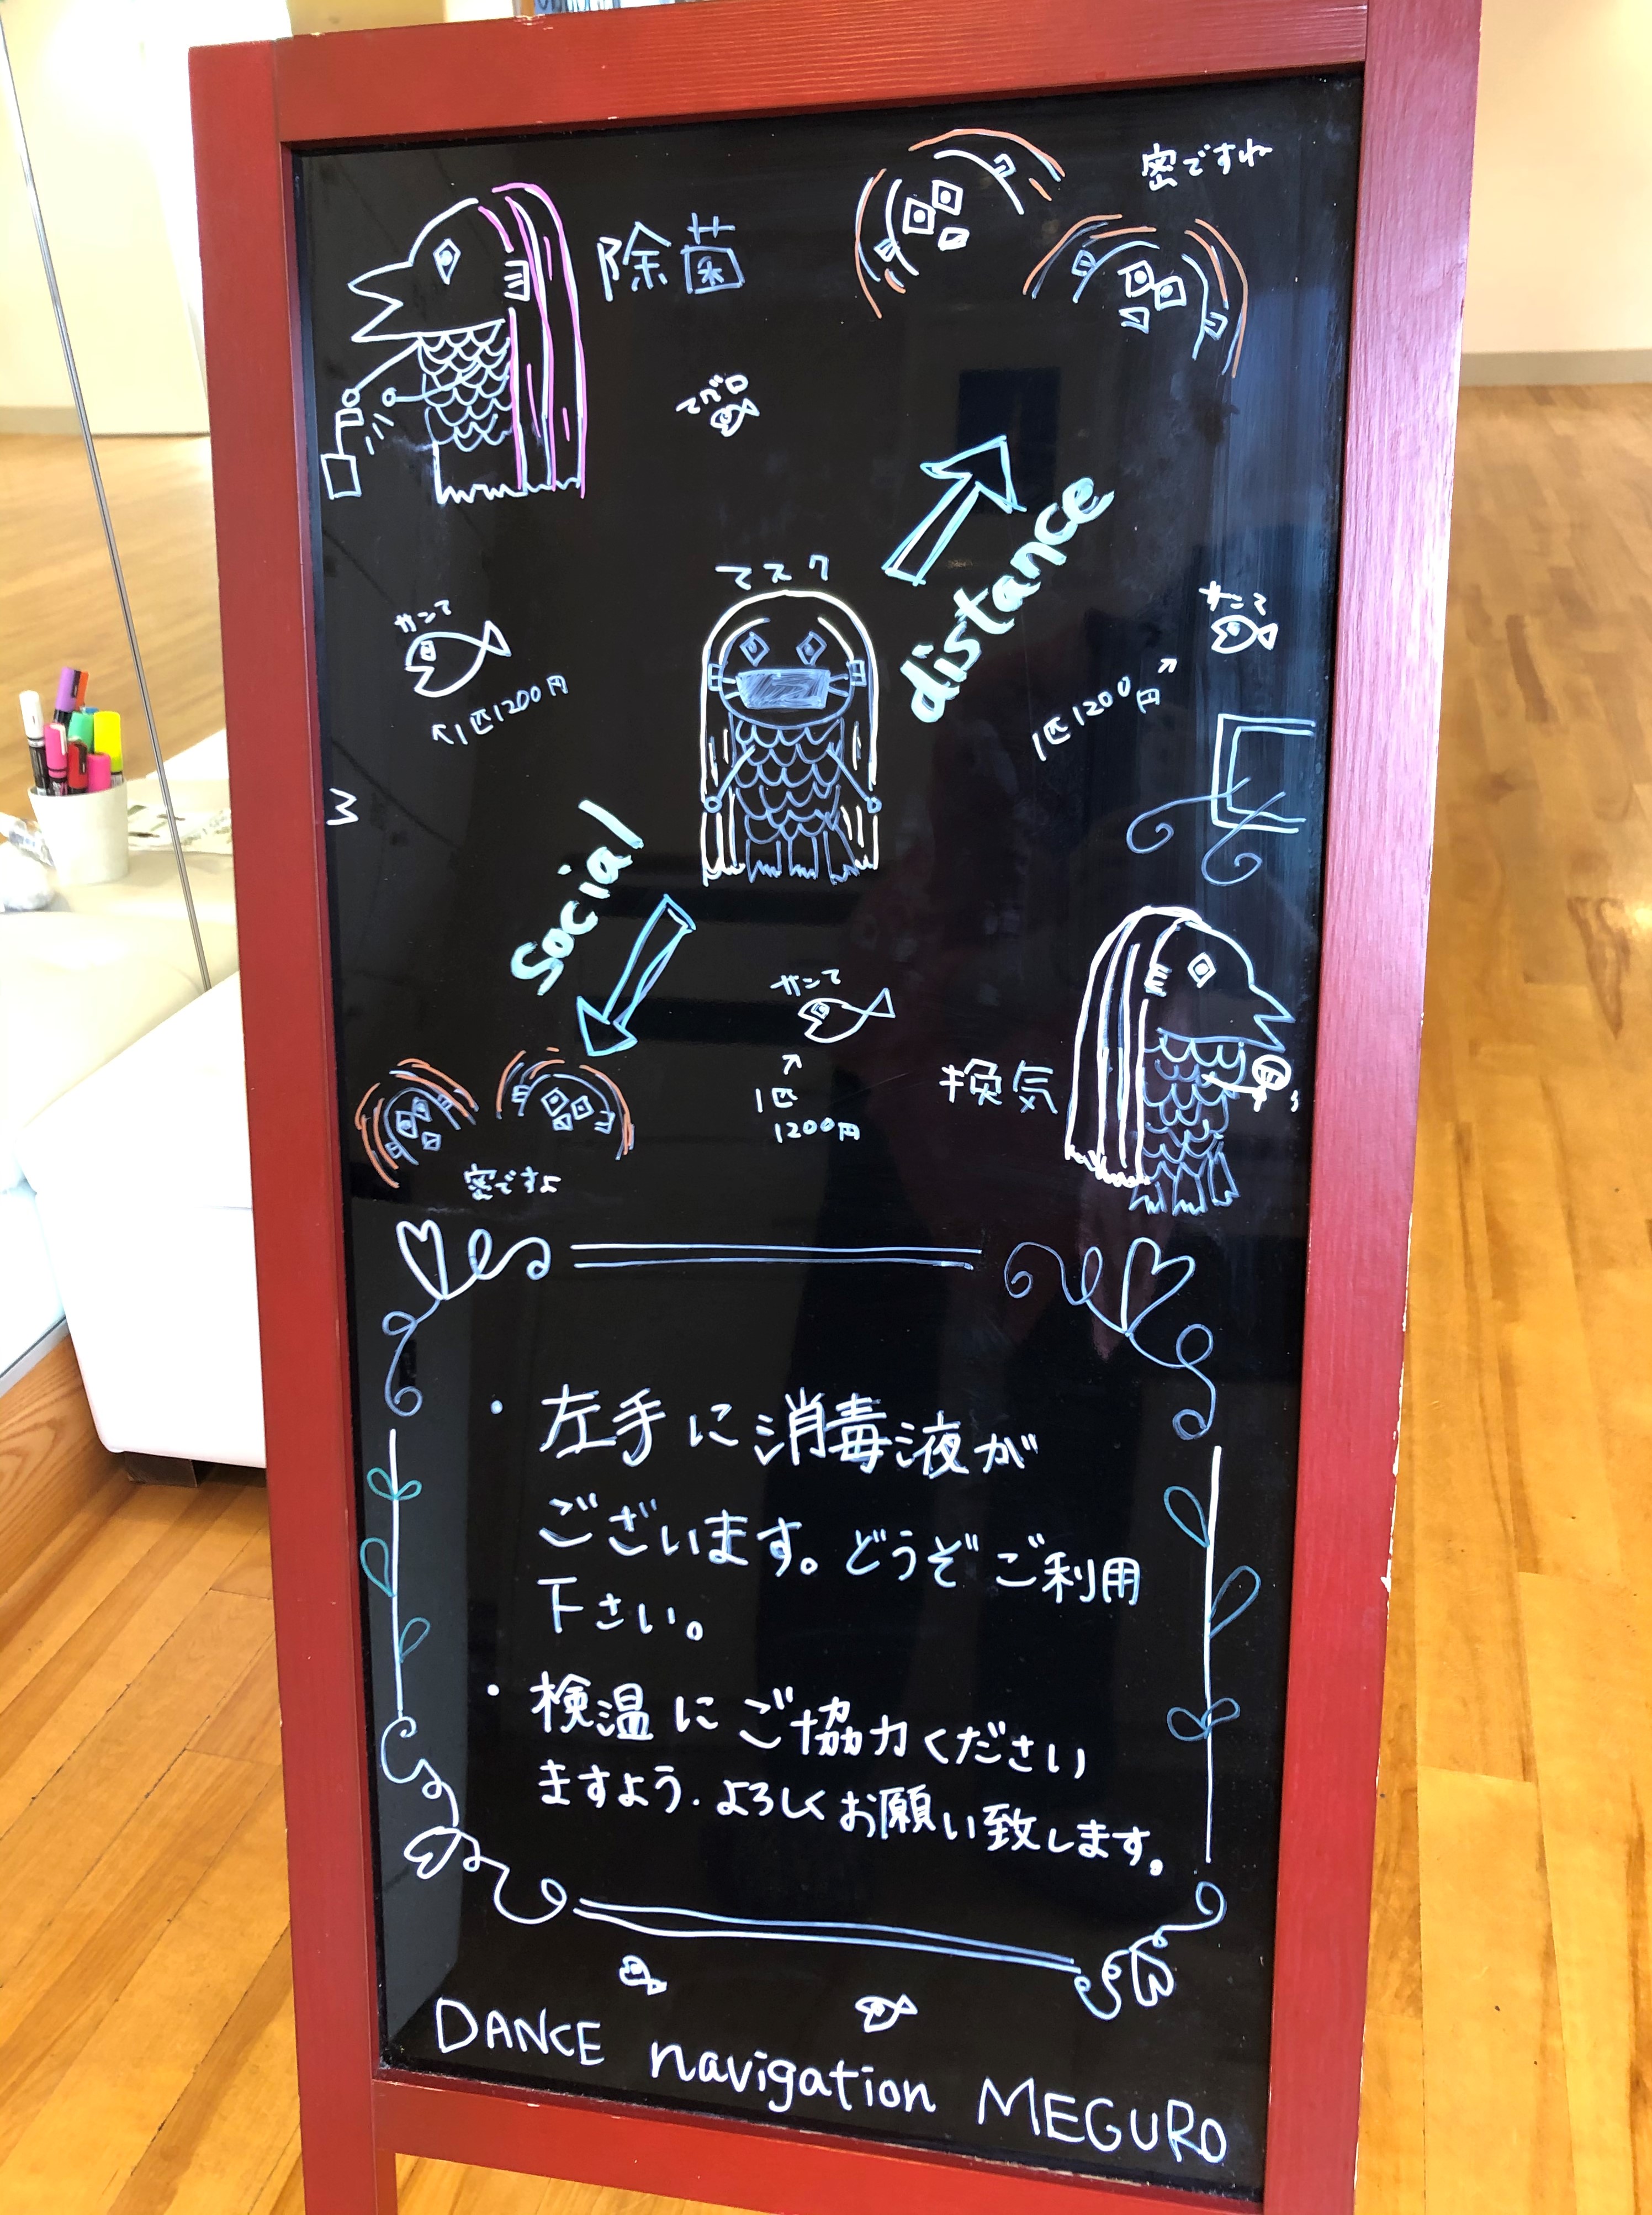 密ですね
除菌
マグロ
distance
マスク
サンマ
サンマ
1匹1200円
1匹1200円
Social
サンマ
1匹
1200円
換気
密ですよ
・左手に消毒液が
ございます。どうぞご利用
下さい。
・検温にご協力ください
ますよう.よろしくお願い致します。
DANCE navigation MEGURO